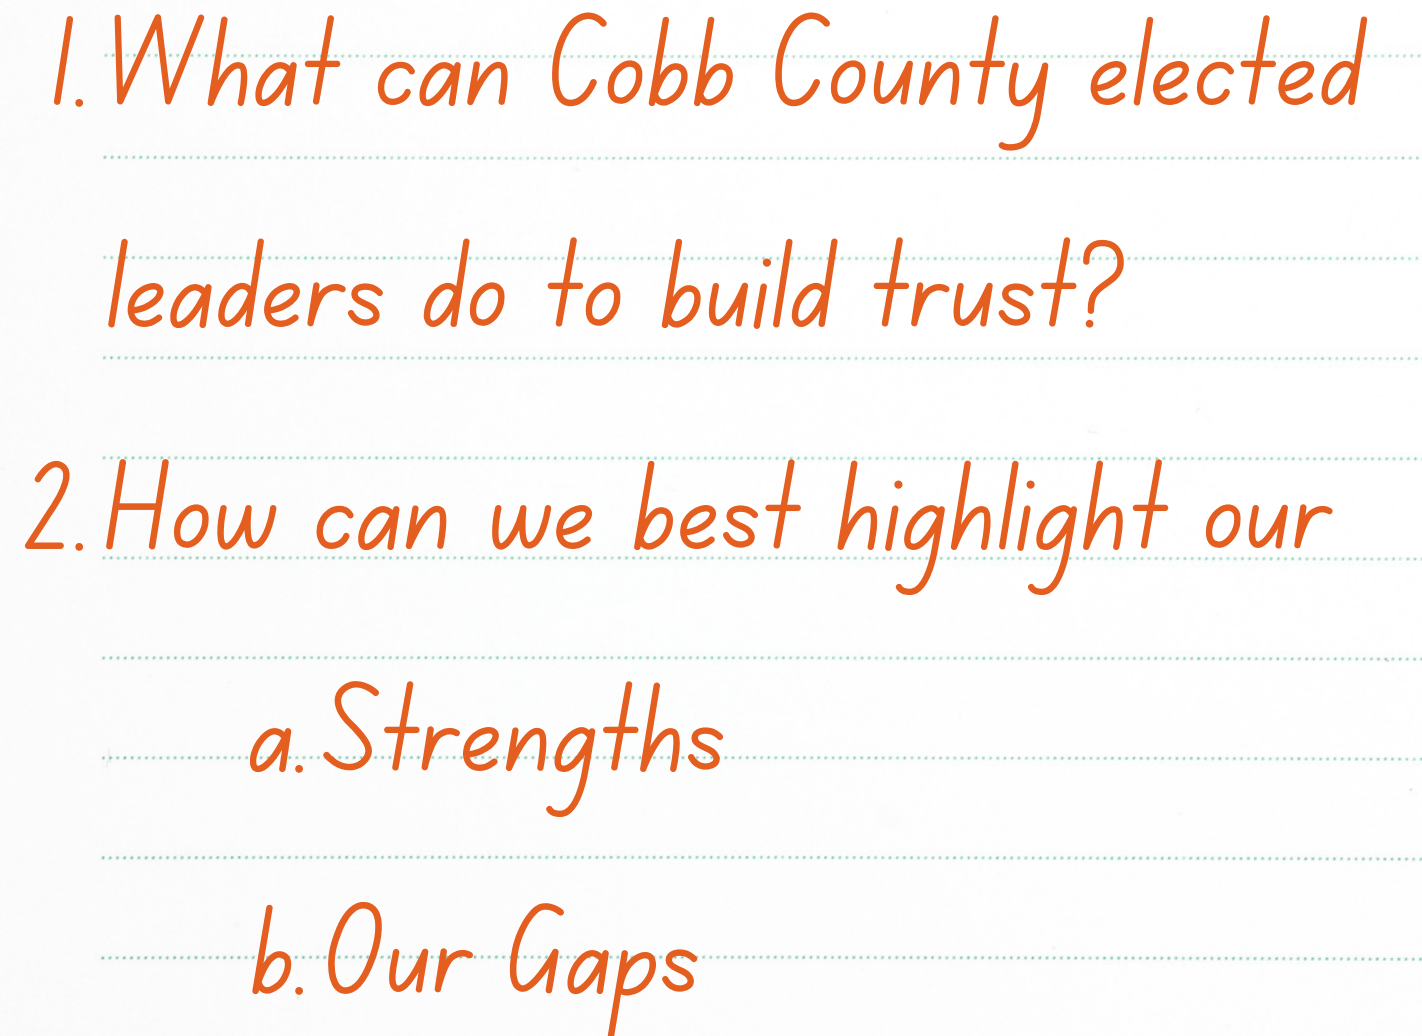 1. What can Cobb County elected
leaders do to build trust?
2. How can we best highlight our
a. Strengths
b. Our Gaps